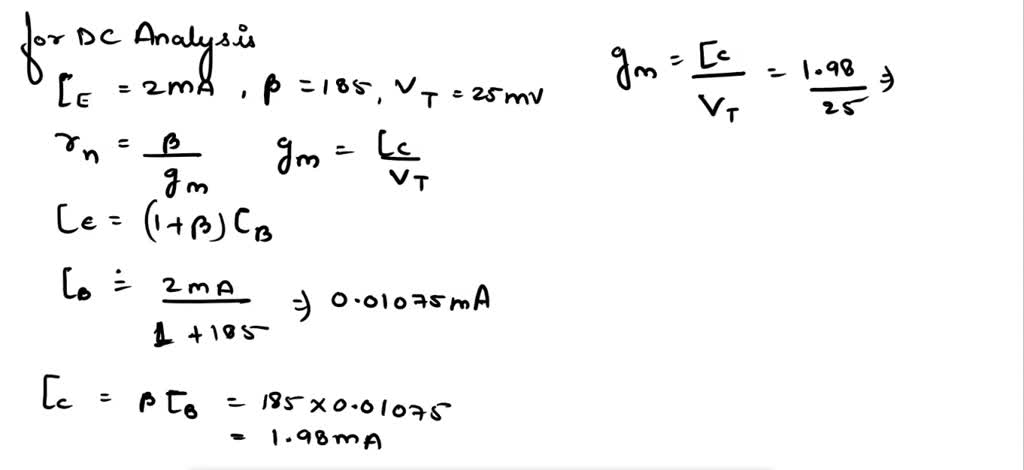 for DC Analysis
I_E = 2mA , β = 185, V_T = 25mV
r_π = β/g_m   g_m = I_C/V_T
I_E = (1+β) I_B
I_B = 2mA/(1+185) ⇒ 0.01075mA
I_C = β I_B = 185 × 0.01075
= 1.98mA
g_m = I_C/V_T = 1.98/25 ⇒